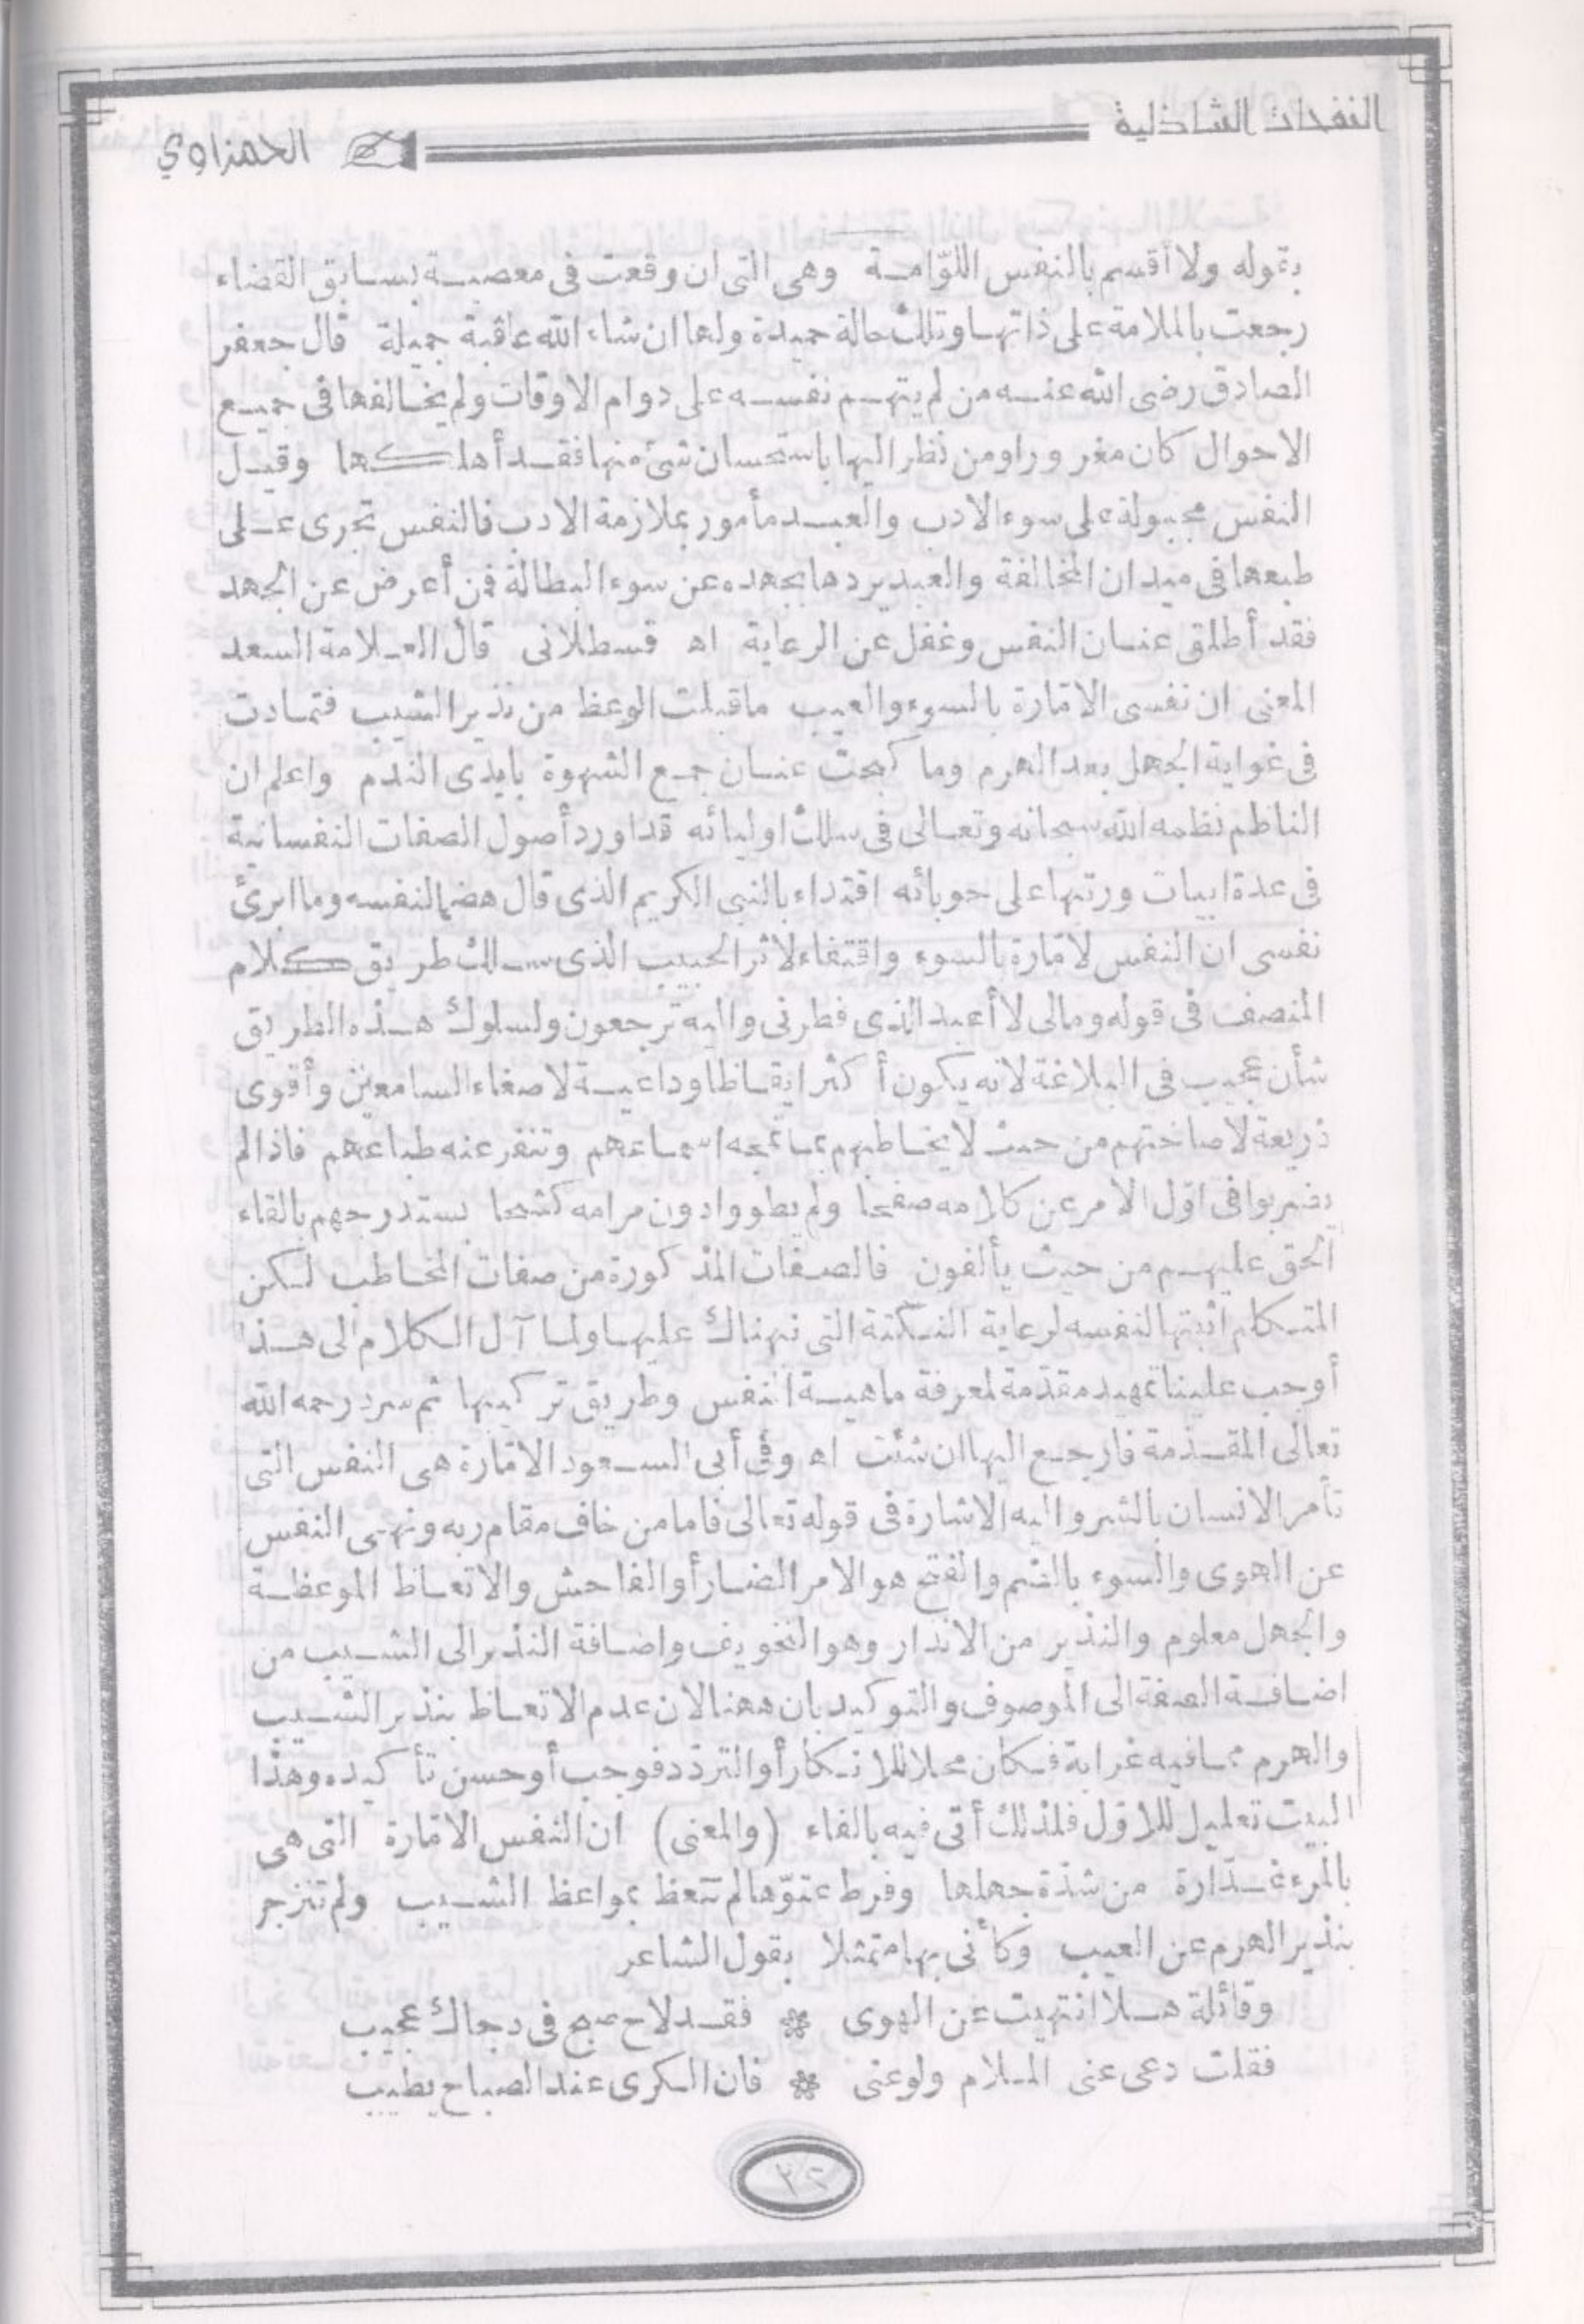 النفحات الشاذلية
الحمزاوي
بقوله ولا أقسم بالنفس اللوّامة وهى التى ان وقعت فى معصية بسابق القضاء
رجعت بالملامة على ذاتها وتلك حالة حميدة ولها ان شاء الله عاقبة جميلة قال جعفر
الصادق رضى الله عنه من لم يتهم نفسه على دوام الاوقات ولم يخالفها فى جميع
الاحوال كان مغرورا ومن نظر اليها باستحسان شئ منها فقد أهلكها وقيل
النفس مجبولة على سوء الادب والعبد مأمور بملازمة الادب فالنفس تجرى على
طبعها فى ميدان المخالفة والعبد يردها بجهده عن سوء البطالة فمن أعرض عن الجهد
فقد أطلق عنان النفس وغفل عن الرعاية اه قسطلانى قال العلامة السعد
المعنى ان نفسى الامّارة بالسوء والعيب ما قبلت الوعظ من نذير الشيب فتمادت
فى غواية الجهل بعد الهرم وما كبحت عنان جمع الشهوة بايدى الندم واعلم ان
الناظم نظمه الله سبحانه وتعالى فى سلك اوليائه قد اورد أصول الصفات النفسانية
فى عدة ابيات ورتبها على حوبائه اقتداء بالنبى الكريم الذى قال هضما لنفسه وما ابرئ
نفسى ان النفس لامّارة بالسوء واقتفاء لاثر الحبيب الذى سلك طريق كلام
المنصف فى قوله ومالى لا أعبد الذى فطرنى واليه ترجعون ولسلوك هذه الطريق
شأن عجيب فى البلاغة لانه يكون أكثر ايقاظا وداعية لاصغاء السامعين وأقوى
ذريعة لاصاختهم من حيث لا يخاطبهم بما تمجه اسماعهم وتنفر عنه طباعهم فاذا لم
يضربوا فى اوّل الامر عن كلامه صفحا ولم يطووا دون مرامه كشحا يستدرجهم بالقاء
الحق عليهم من حيث يألفون فالصفات المذكورة من صفات المخاطب لكن
المتكلم أثبتها لنفسه لرعاية النكتة التى نبهناك عليها ولما آل الكلام الى هذا
أوجب علينا تمهيد مقدّمة لمعرفة ماهية النفس وطريق تركيبها ثم سرد رحمه الله
تعالى المقدّمة فارجع اليها ان شئت اه وفى أبى السعود الامّارة هى النفس التى
تأمر الانسان بالشر واليه الاشارة فى قوله تعالى فاما من خاف مقام ربه ونهى النفس
عن الهوى والسوء بالضم والفتح هو الامر الضار أو الفاحش والاتعاظ الموعظة
والجهل معلوم والنذير من الانذار وهو التخويف واضافة النذير الى الشيب من
اضافة الصفة الى الموصوف والتوكيد بان ههنا لان عدم الاتعاظ بنذير الشيب
والهرم مما فيه غرابة فكان محلا للانكار أو التردّد فوجب أو حسن تأكيده وهذا
البيت تعليل للاوّل فلذلك أتى فيه بالفاء (والمعنى) ان النفس الامّارة التى هى
بالمرء غدّارة من شدّة جهلها وفرط عتوّها لم تتعظ بمواعظ الشيب ولم تنزجر
بنذير الهرم عن العيب وكأنى بها متمثلا بقول الشاعر
وقائلة هلا انتهيت عن الهوى ❋ فقد لاح صبح فى دجاك عجيب
فقلت دعى عنى الملام ولوعنى ❋ فان الكرى عند الصباح يطيب